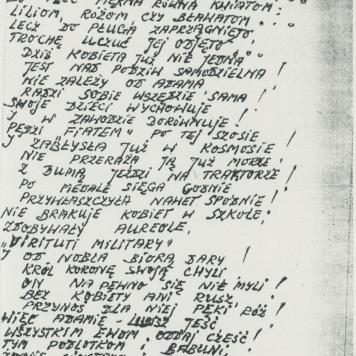 PIĘKNA RÓWNA KWIATOM:
LILIOM, RÓŻOM, CZY BŁAWATOM
LECZ DO PŁUGA ZAPRZĄGNIĘTO
TROCHĘ UCZUĆ JEJ ODJĘTO
DZIŚ KOBIETA JUŻ NIE JEDNA
JEST NAD PODZIW SAMODZIELNA!
NIE ZALEŻY OD ADAMA
RADZI SOBIE WSZĘDZIE SAMA!
SWOJE DZIECI WYCHOWUJE
I W ZAWODZIE DORÓWNUJE!
PĘDZI „FIATEM" PO TEJ SZOSIE!
I ZABŁYSŁA JUŻ W KOSMOSIE
NIE PRZERAŻA JĄ JUŻ MORZE
Z DUMĄ JEŹDZI NA TRAKTORZE!
PO MEDALE SIĘGA GODNIE
PRZYWŁASZCZYŁA NAWET SPODNIE!
NIE BRAKUJE KOBIET W SZKOLE;
ZDOBYWAŁY AUREOLE,
„VIRITUTI MILITARY"
I OD NOBLA BIORĄ DARY!
KRÓL KORONĘ SWOJĄ CHYLI
ON NA PEWNO SIĘ NIE MYLI!
BEZ KOBIETY ANI RUSZ
PRZYNOŚ DLA NIEJ PĘKI RÓŻ!
WIĘC ADAMIE JEŚĆ
WSZYSTKIM EWOM ODDAJ CZEŚĆ!
TYM PODLOTKOM, BABUNI,